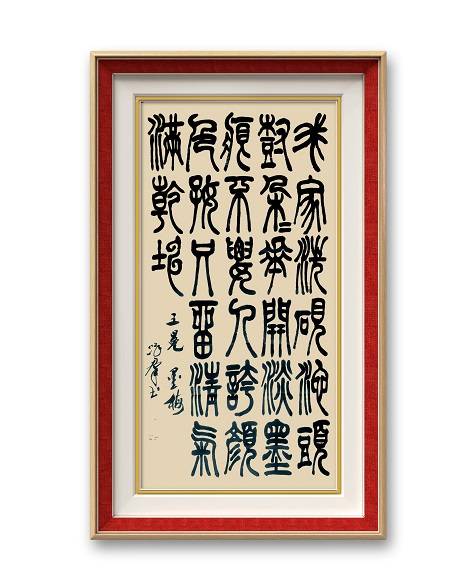 我家洗硯池頭
樹朵〻華開淡墨
痕不要人誇顏
色好只留清氣
滿乾坤
王冕 墨梅
群书